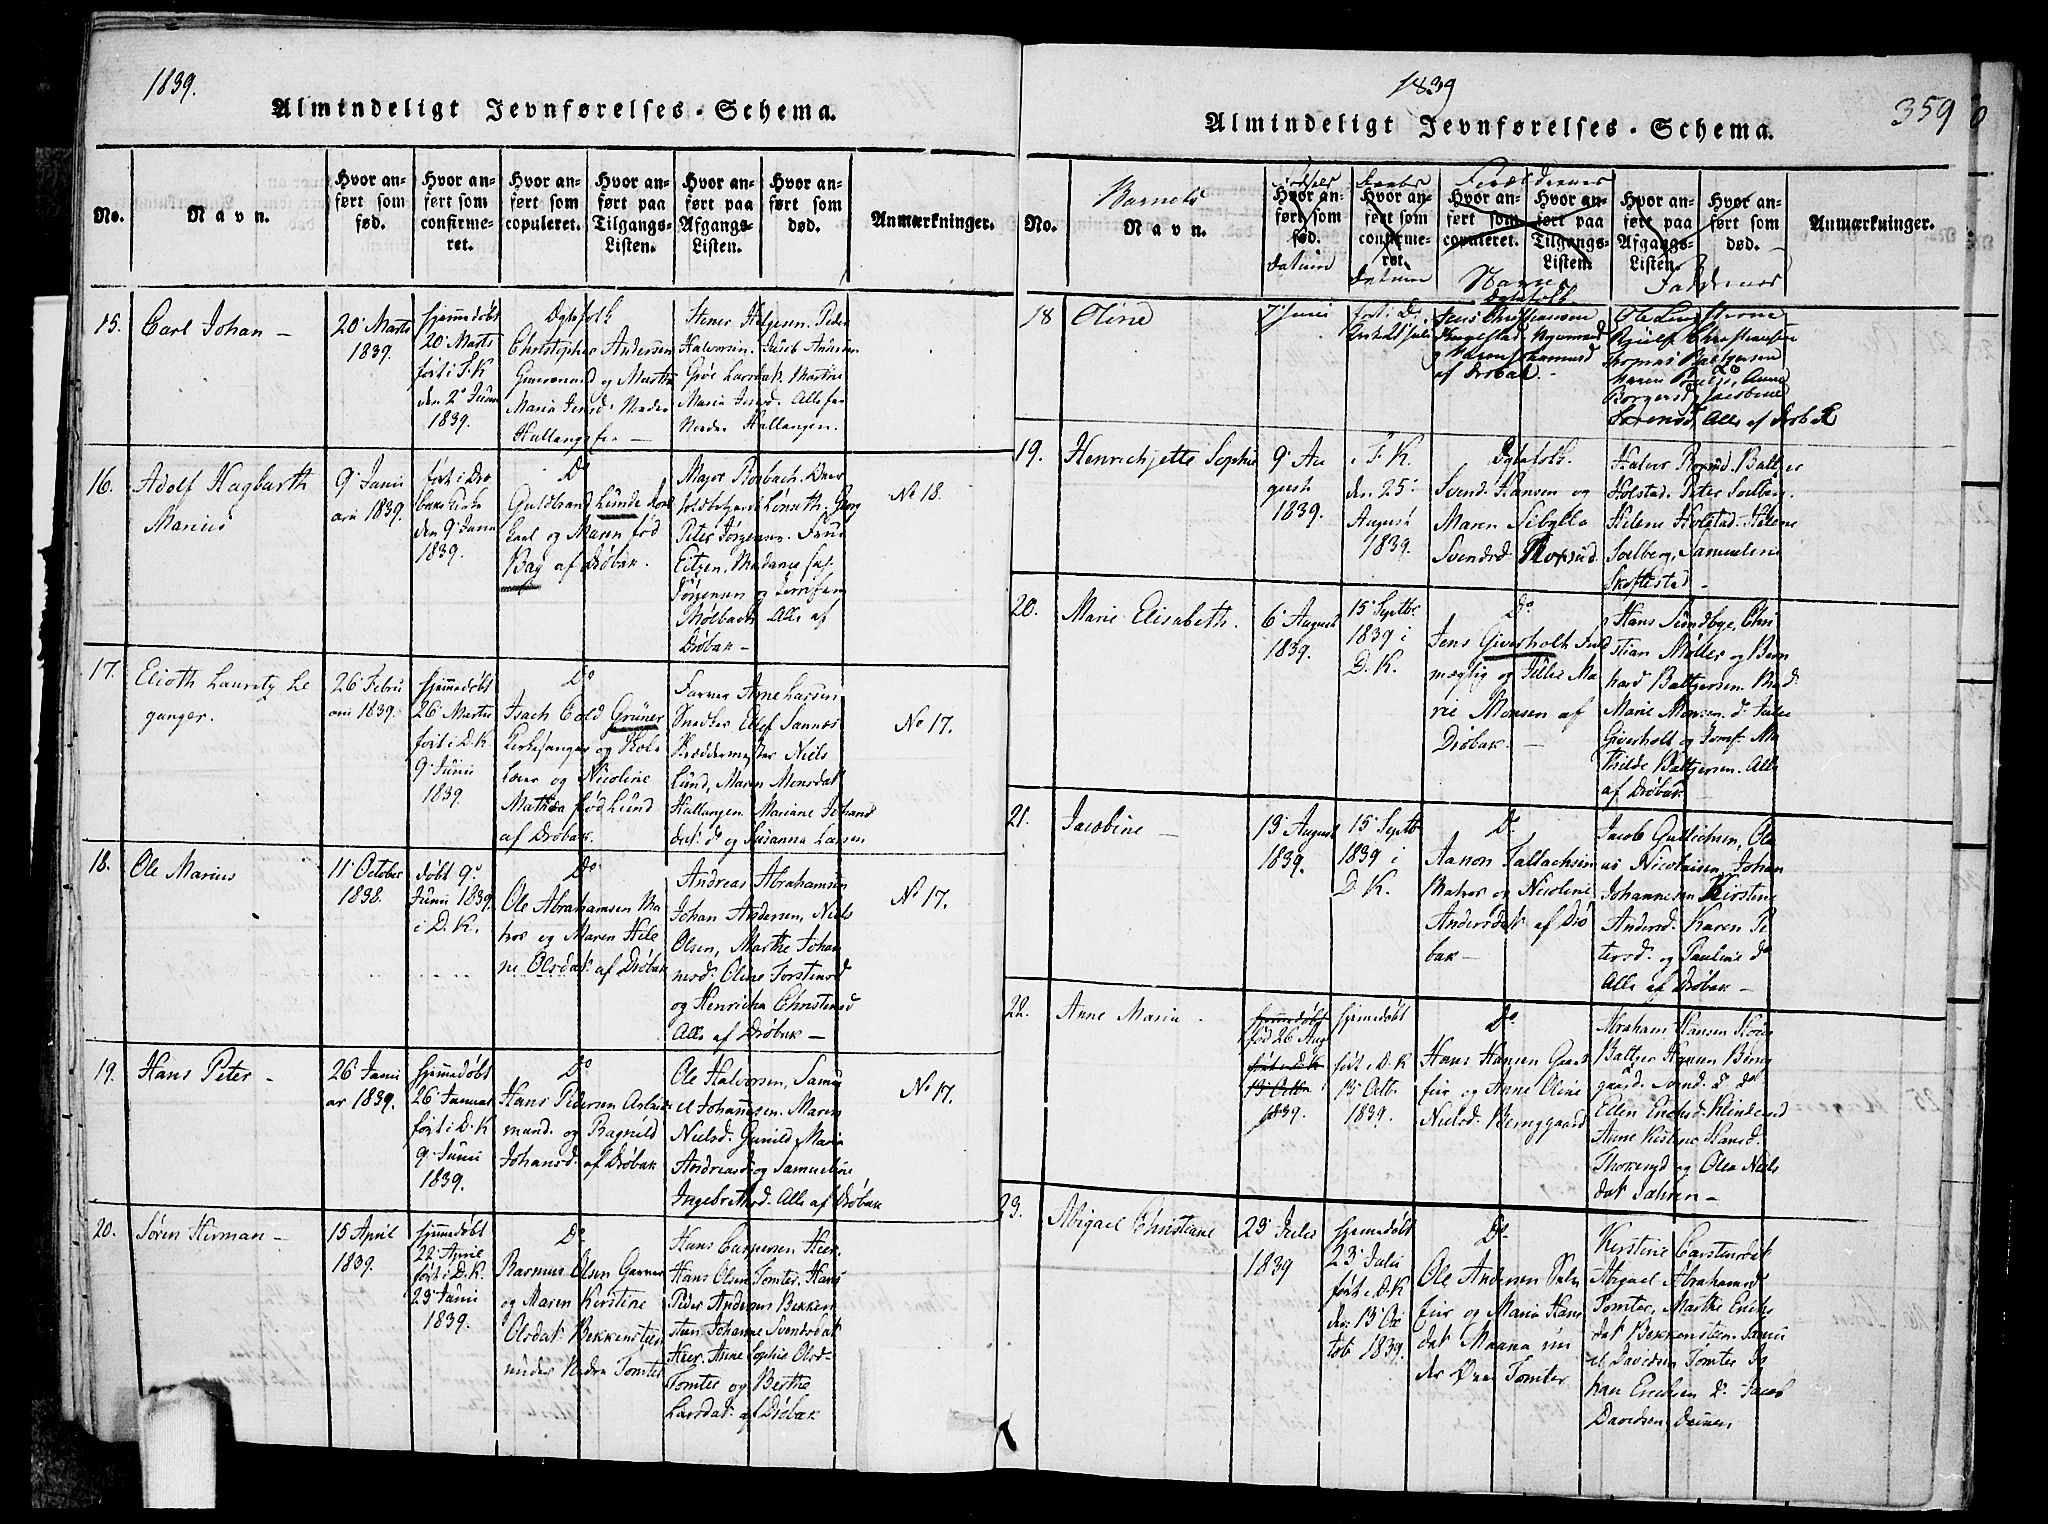 1839.
Almindeligt Jevnførelses-Schema.
No.
Navn.
Hvor an-
ført som
fød.
Hvor an-
ført som
confirme-
ret.
Hvor an-
ført som
copuleret.
Hvor an-
ført paa
Tilgangs-
Listen.
Hvor an-
ført paa
Afgangs-
Listen.
Hvor an-
ført som
død.
Anmærkninger.
15.
Carl Johan –
20 Marts
1839.
hjemmedøbt
20 Marts
ført i F.K
den 2 Juni
1839.
Ægtefolk
Christopher Andersen
og Marthe
Maria Jensd: Nedre
Hallangs
Stener Helgesen. Peder
Halvorsen. Jacob Andersen
Larsdat. Martine
Maria Jensd. Alle fra
Nedre Hallangen.
16.
Adolf Hagbarth
Marius
9 Janu
ari 1839.
ført i Drø
baks Kirke
den 9 Juni
1839.
Do
Guldbrand Lunde
og Maren fød
Bay af Drøbak.
Major Rosbach.
Georg
Peter Jørgensen. Frue
Eitzen. Madame
Jørgensen og Jomfru
Thølbach Alle af
Drøbak –
No 18.
17.
Elioth Lauritz Le
ganger.
26 Febru
ari 1839.
hjemmedøbt
26 Martii
ført i D.K
9 Juni
1839.
Do
Isach Cold Grüner
Kirkesanger og Skole
Lærer og Nicoline
Mathea fød Lund
af Drøbak.
Farver Arne Larsen
Snedker Ellef Sannes
Skræddermester Niels
Lund, Maren Monsdat
Hallangen Mariane Johans
dat: do og Susanna Larsen
No 17.
18.
Ole Marius
11 October
1838.
døbt 9
Juni 1839.
i D.K.
Do
Ole Abrahamsen Ma
tros og Maren Hele
ne Olsdat: af Drøbak
Andreas Abrahamsen
Johan Andersen, Niels
Olsen, Marthe Johan
nesd. Oline Torstensd
og Henricha Christensd
Alle af Drøbak –
No 17.
19.
Hans Peter –
26 Janu
ar 1839.
hjemmedøbt
26 Januar
ført i D.K
9 Juni
1839.
Do
Hans Pedersen Arbeids
mand. og Ragnild
Johansd: af Drøbak
Ole Halvorsen, Samu
el Johannesen. Maren
Nielsd. Gunild Maria
Andreasd og Samueline
Ingebrethsd. Alle af Drøbak
No 17.
20.
Søren Herman –
15 April
1839.
hjemmedøbt
22 April
ført i D.K.
23 Juni
1839.
Do
Rasmus Olsen Garver
og Maren Kerstine
Olsdat: Bekkensteen
under Nedre Tomter
Hans Caspersen Heer.
Hans Olsen Tomter. Hans
Peder Andersen Bekken
steen. Johanne Svendsdat
Heer. Anne Sophie Olsd
Tomter og Berthe
Larsdat: af Drøbak
1839
359
Almindeligt Jevnførelses-Schema.
No.
Barnets
Navn.
Fødsels
Hvor an-
ført som
fød.
Datum
Daabs
Hvor an-
ført som
confirme-
ret.
Datum
Forældrenes
Hvor an-
ført som
copuleret.
Hvor an-
ført paa
Tilgangs-
Listen.
Navne
Hvor an-
ført paa
Afgangs-
Listen.
Hvor an-
ført som
død.
Faddernes
Anmærkninger.
18
Oline
7 Juni
Ægtefolk
Jens Christiansen
og Maren Johannesd
af Drøbak –
Christiansen
Thomas Baltzersen
Maren
Anne
Borgersd Jacobine
Sørensd Alle af Drøbak
19.
Henrichjette Sophie
9 Au
gust
1839.
i F.K.
den 25
August
1839.
Ægtefolk.
Svend Hansen og
Maren Sibylla
Svendsd.
Halvor
Baltzer
Holstad. Peter Solberg.
Helene Holstad. Helene
Solberg, Samueline
Skoftestad –
20.
Marie Elisabeth.
6 August
1839.
15 Septbr
1839 i
D.K.
Do
Jens Giverholt
og Julie Ma
rie Monsen af
Drøbak. –
Hans Sundbye, Chri
stian Møller og Bern
hard Baltzersen. Mad:
Marie Monsen. do Julie
Giverholt og Jomf. Ma
thilde Baltzersen. Alle
af Drøbak
21.
Jacobine –
19 August
1839.
15 Septbr
1839 i
D.K.
Do
Aanon Sallachsen
Matros og Nicoline
Andersdat: af Drø
bak –
Jacob Gullichsen, Ola
us Nicolaisen, Johan
Johannesen Kirstine
Andersd. Karen Pe
tersd. og Pauline do
Alle af Drøbak –
22.
Anne Maria –
hjemmedøbt
fød 26 Aug
ført i D.K
13 Octbr
1839.
hjemmedøbt
ført i D.K
13 Octbr
1839.
Do
Hans Hansen Gaard
eier og Anne Oline
Nielsd. Berggaard
Abraham Hansen
Baltzer Hansen Berg
gaard. Svend do do
Ellen Erichsd.
Anne Kistine Hansd.
og Olea Niels
dat
23.
Abigael Christiane
23 Julii
1839
hjemmedøbt
23 Julii
ført i D.K
den 13 Oc
tob 1839.
Do
Ole Andersen Selv
eier og Maria Hans
dat Maana un
der Øvre Tomter
Kerstine Carstensdat
Abigael Abrahamsd
Tomter, Marthe Erichs
dat Bekkensteen. Samu
el Davidsen Tomter Jo
han Erichsen do. Jacob
Davidsen